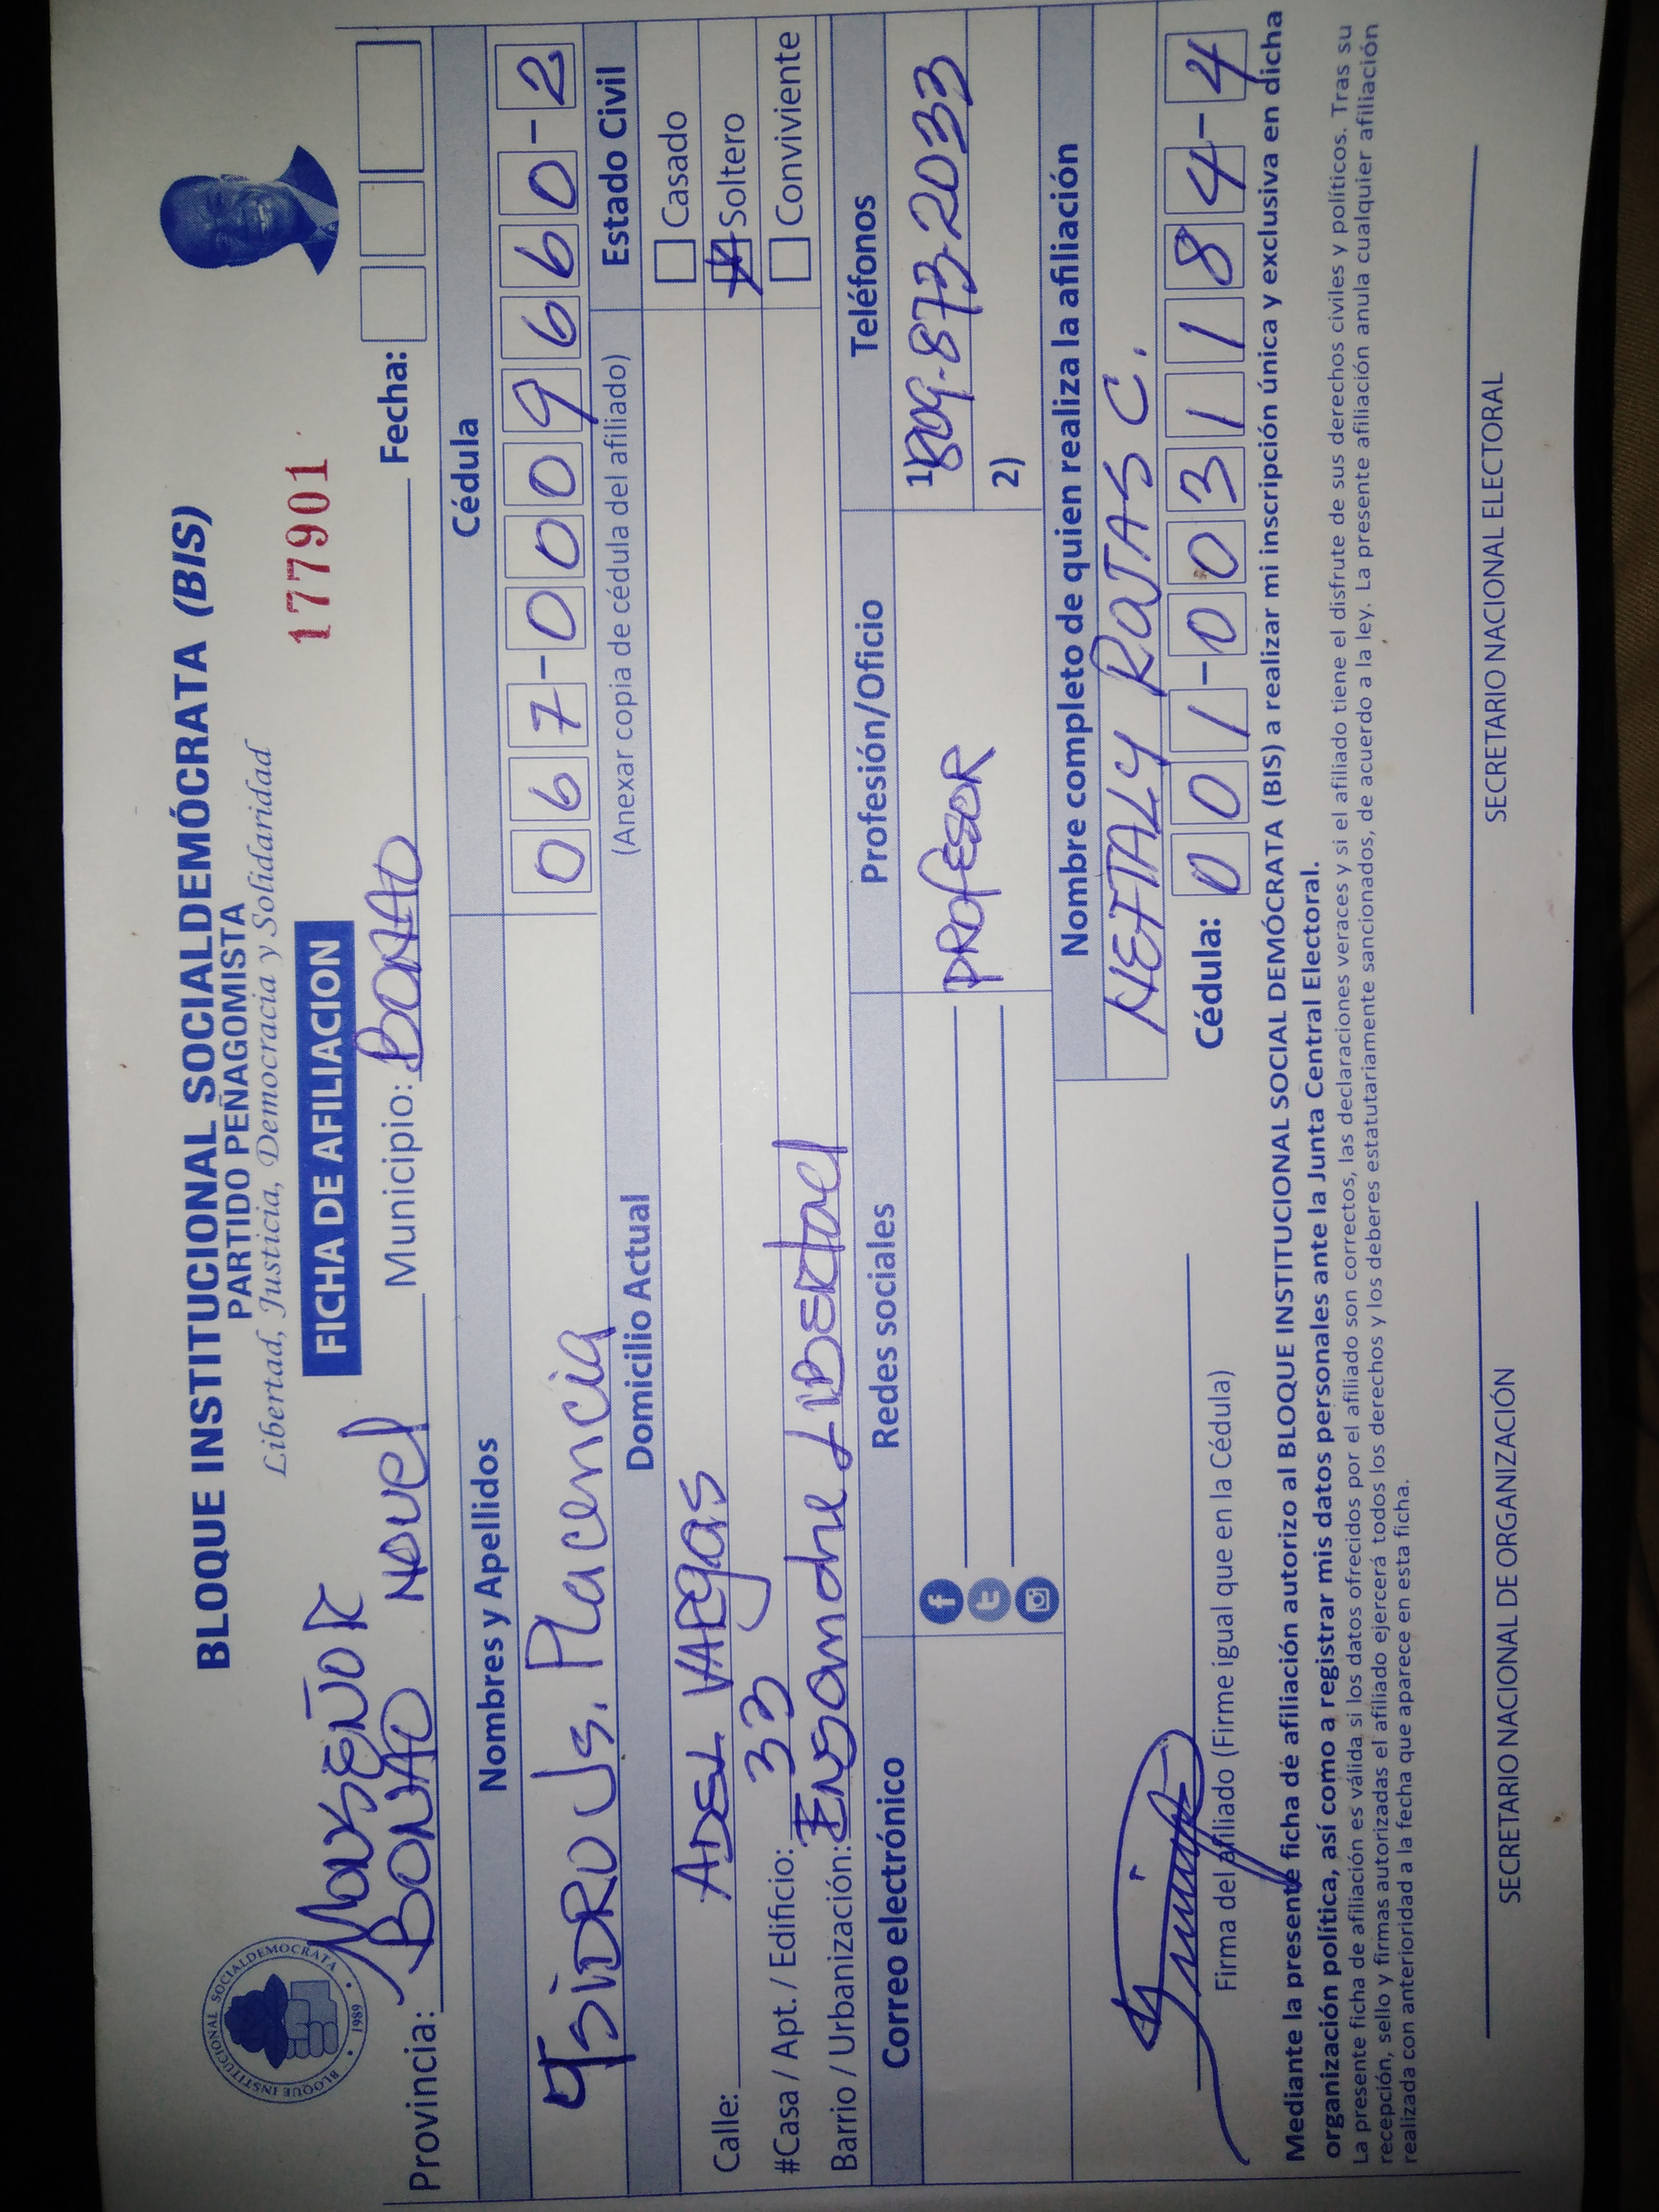 BLOQUE INSTITUCIONAL SOCIALDEMÓCRATA (BIS)
PARTIDO PEÑAGOMISTA
Libertad, Justicia, Democracia y Solidaridad
BLOQUE INSTITUCIONAL SOCIALDEMOCRATA • 1989 •
FICHA DE AFILIACION
177901
MONSEÑOR
Provincia: BONAO NOUEL Municipio: BONAO Fecha:
Nombres y Apellidos Cédula
YSIDRO Js. Placencia 067-0009660-2
Domicilio Actual (Anexar copia de cédula del afiliado) Estado Civil
Calle: ADEL VARgas Casado
#Casa / Apt. / Edificio: 33 Soltero
Barrio / Urbanización: ENSanche LIBERtad Conviviente
Correo electrónico Redes sociales Profesión/Oficio Teléfonos
PROfESOR 1) 809-873-2033
2)
Nombre completo de quien realiza la afiliación
NEFTALY ROJAS C.
Cédula: 001-0031184-4
Firma del afiliado (Firme igual que en la Cédula)
Mediante la presente ficha de afiliación autorizo al BLOQUE INSTITUCIONAL SOCIAL DEMÓCRATA (BIS) a realizar mi inscripción única y exclusiva en dicha
organización política, así como a registrar mis datos personales ante la Junta Central Electoral.
La presente ficha de afiliación es válida si los datos ofrecidos por el afiliado son correctos, las declaraciones veraces y si el afiliado tiene el disfrute de sus derechos civiles y políticos. Tras su
recepción, sello y firmas autorizadas el afiliado ejercerá todos los derechos y los deberes estatutariamente sancionados, de acuerdo a la ley. La presente afiliación anula cualquier afiliación
realizada con anterioridad a la fecha que aparece en esta ficha.
SECRETARIO NACIONAL DE ORGANIZACIÓN SECRETARIO NACIONAL ELECTORAL